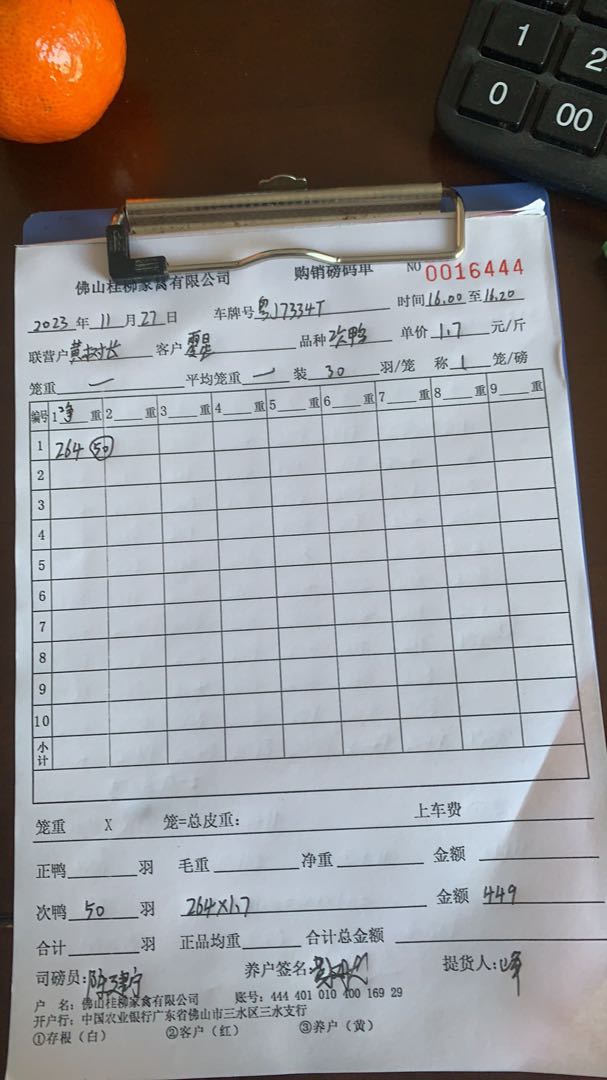 1
2
0
00
佛山桂柳家禽有限公司 购销磅码单 NO 0016444
2023 年 11 月 27 日 车牌号 粤J7334T 时间 16.00 至 16.20
联营户 黄树长 客户 品种 次鸭 单价 1.7 元/斤
笼重 一 平均笼重 一 装 30 羽/笼 称 1 笼/磅
编号 1 净 重 2 重 3 重 4 重 5 重 6 重 7 重 8 重 9 重
1 264 50
2
3
4
5
6
7
8
9
10
小计
笼重 X 笼=总皮重: 上车费
正鸭 羽 毛重 净重 金额
次鸭 50 羽 264×1.7 金额 449
合计 羽 正品均重 合计总金额
司磅员: 养户签名: 提货人: 峰
户 名: 佛山桂柳家禽有限公司 账号: 444 401 010 400 169 29
开户行: 中国农业银行广东省佛山市三水区三水支行
①存根(白) ②客户(红) ③养户(黄)